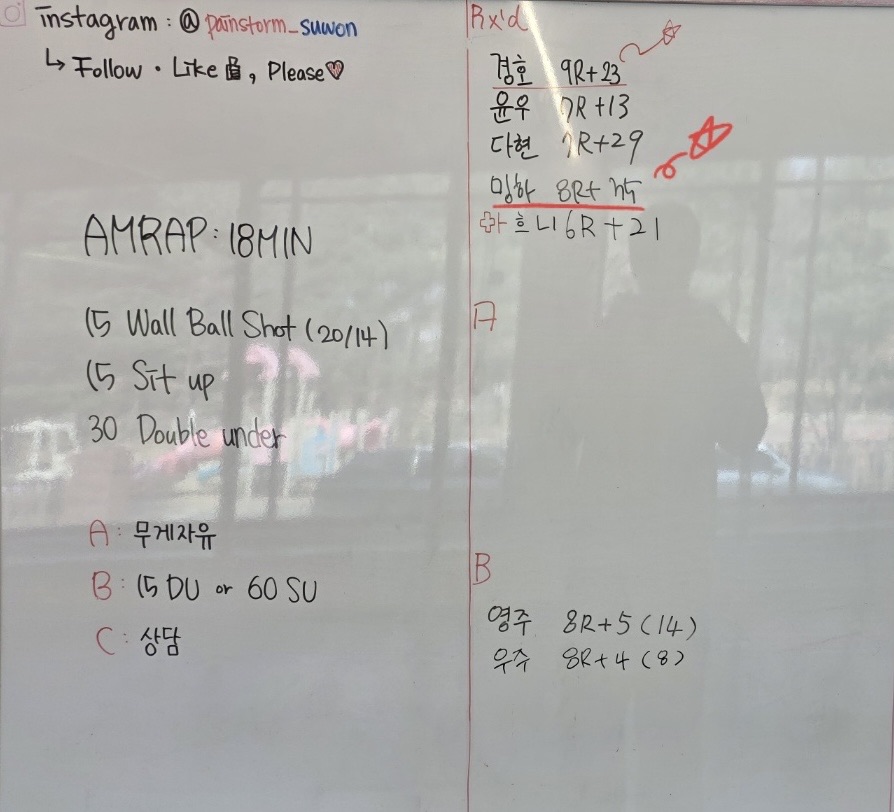 instagram : @ painstorm_suwon
↳ Follow · Like 👍, Please♡
AMRAP : 18MIN
15 Wall Ball Shot (20/14)
15 Sit up
30 Double under
A : 무게자유
B : 15 DU or 60 SU
C : 상담
Rx'd
경호 9R+23
윤우 7R+13
다현 7R+29
8R+
6R+21
A
B
영주 8R+5 (14)
우주 8R+4 (8)